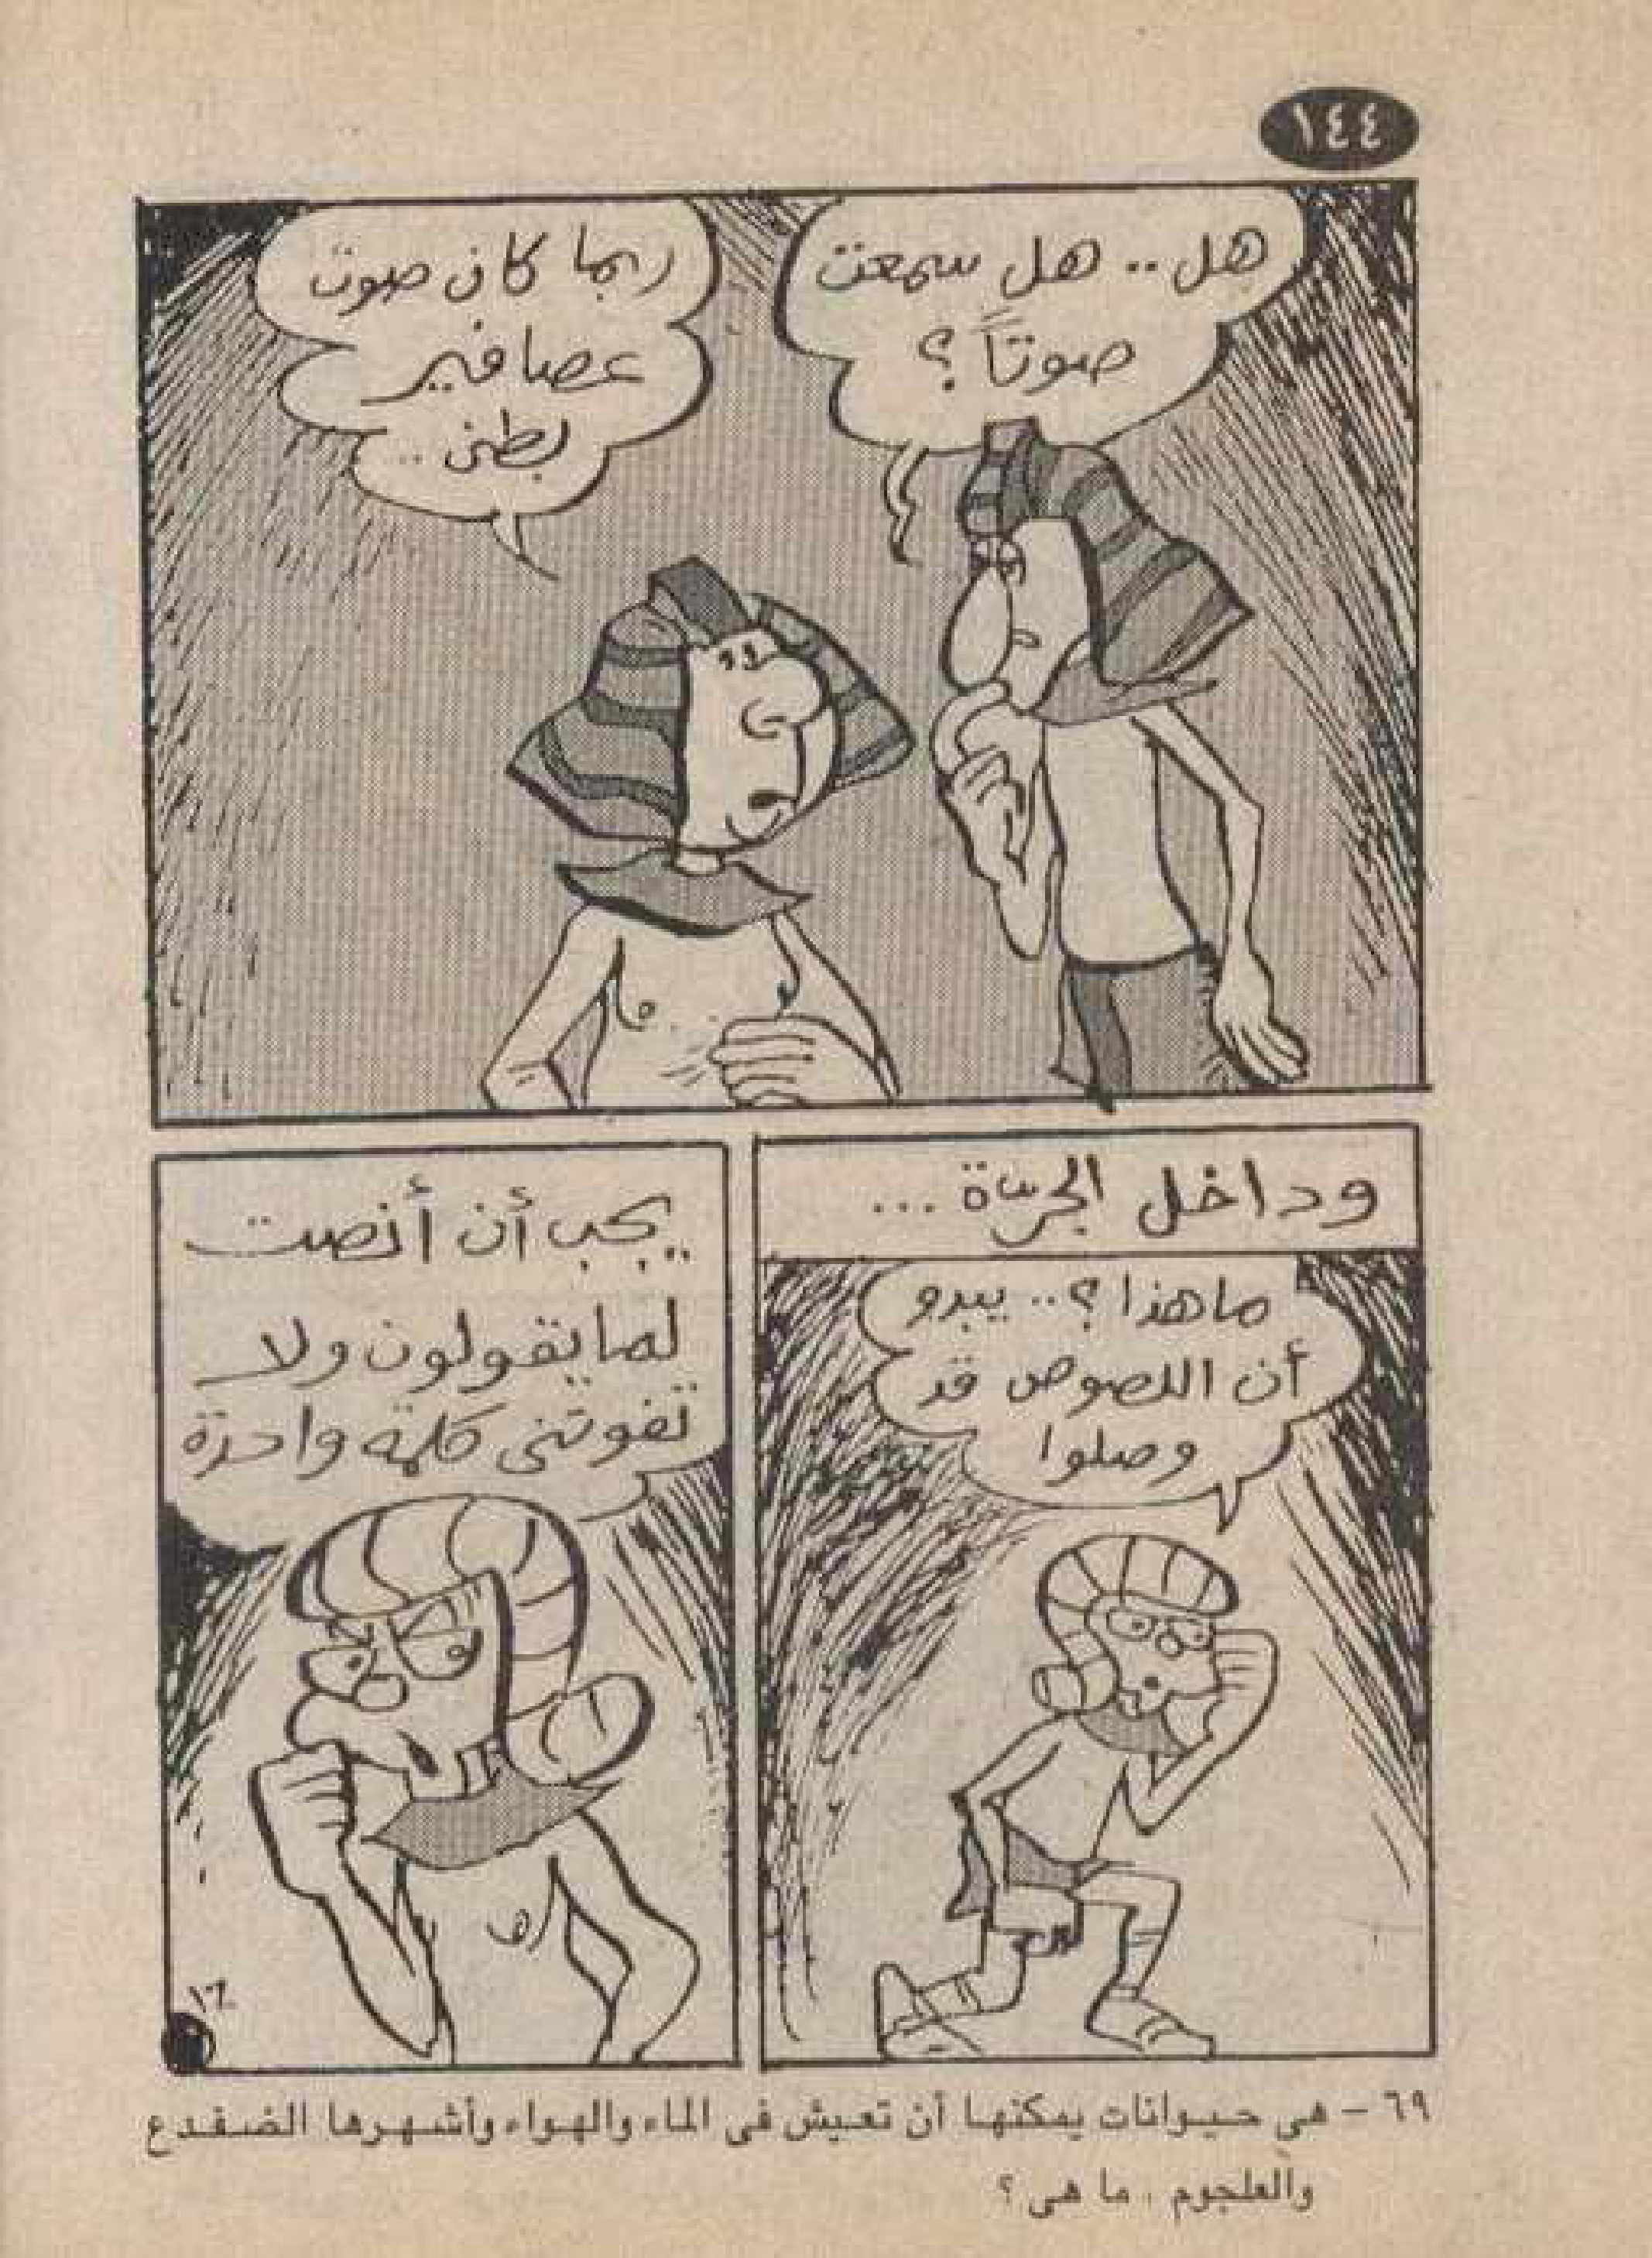 ١٤٤
هل .. هل سمعت
صوتاً ؟
ربما كان صوت
عصافير
بطنى ...
وداخل الجرّة ...
ما هذا ؟ .. يبدو
أن اللصوص قد
وصلوا
يجب أن أنصت
لما يقولون ولا
تفوتنى كلمة واحدة
١٦
٦٩ - هي حيوانات يمكنها أن تعيش فى الماء والهواء وأشهرها الضفدع
والعلجوم . ما هى ؟